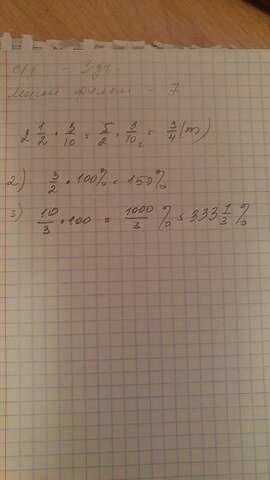 - 7
2 1/2 · 3/10 = 5/2 · 3/10 = 3/4 (m)
2) 3/2 · 100% = 150%
3) 10/3 · 100 = 1000/3 % = 333 1/3 %